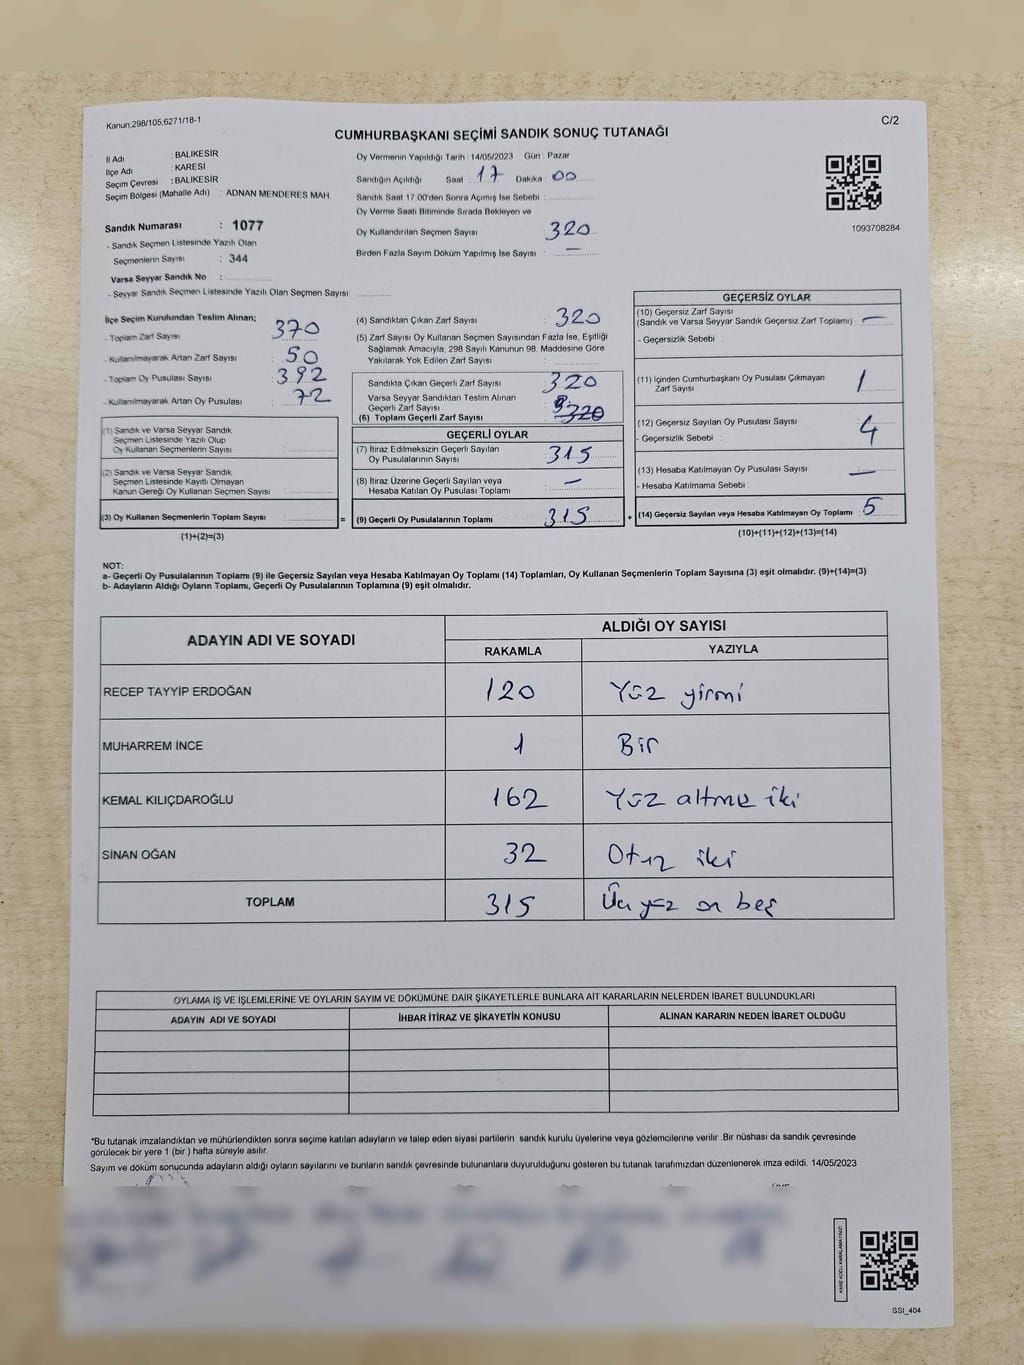 Kanun:298/105,6271/18-1
C/2
CUMHURBAŞKANI SEÇİMİ SANDIK SONUÇ TUTANAĞI
İl Adı : BALIKESİR
İlçe Adı : KARESİ
Seçim Çevresi : BALIKESİR
Seçim Bölgesi (Mahalle Adı) : ADNAN MENDERES MAH.
Sandık Numarası : 1077
- Sandık Seçmen Listesinde Yazılı Olan
Seçmenlerin Sayısı : 344
Varsa Seyyar Sandık No :
- Seyyar Sandık Seçmen Listesinde Yazılı Olan Seçmen Sayısı:
Oy Vermenin Yapıldığı Tarih :14/05/2023 Gün : Pazar
Sandığın Açıldığı Saat : 17 Dakika : 00
Sandık Saat 17.00'den Sonra Açımış İse Sebebi :
Oy Verme Saati Bitiminde Sırada Bekleyen ve
Oy Kullandırılan Seçmen Sayısı : 320
Birden Fazla Sayım Döküm Yapılmış İse Sayısı : —
1093708284
İlçe Seçim Kurulundan Teslim Alınan;
- Toplam Zarf Sayısı : 370
- Kullanılmayarak Artan Zarf Sayısı : 50
- Toplam Oy Pusulası Sayısı : 392
- Kullanılmayarak Artan Oy Pusulası : 72
(1) Sandık ve Varsa Seyyar Sandık
Seçmen Listesinde Yazılı Olup
Oy Kullanan Seçmenlerin Sayısı :
(2) Sandık ve Varsa Seyyar Sandık
Seçmen Listesinde Kayıtlı Olmayan
Kanun Gereği Oy Kullanan Seçmen Sayısı :
(3) Oy Kullanan Seçmenlerin Toplam Sayısı :
(1)+(2)=(3)
=
(4) Sandıktan Çıkan Zarf Sayısı : 320
(5) Zarf Sayısı Oy Kullanan Seçmen Sayısından Fazla İse, Eşitliği
Sağlamak Amacıyla, 298 Sayılı Kanunun 98. Maddesine Göre
Yakılarak Yok Edilen Zarf Sayısı :
Sandıkta Çıkan Geçerli Zarf Sayısı : 320
Varsa Seyyar Sandıktan Teslim Alınan
Geçerli Zarf Sayısı :
(6) Toplam Geçerli Zarf Sayısı : 320
GEÇERLİ OYLAR
(7) İtiraz Edilmeksizin Geçerli Sayılan
Oy Pusulalarının Sayısı : 315
(8) İtiraz Üzerine Geçerli Sayılan veya
Hesaba Katılan Oy Pusulası Toplamı : —
(9) Geçerli Oy Pusulalarının Toplamı : 315
+
GEÇERSİZ OYLAR
(10) Geçersiz Zarf Sayısı
(Sandık ve Varsa Seyyar Sandık Geçersiz Zarf Toplamı) : —
- Geçersizlik Sebebi :
(11) İçinden Cumhurbaşkanı Oy Pusulası Çıkmayan
Zarf Sayısı : 1
(12) Geçersiz Sayılan Oy Pusulası Sayısı : 4
- Geçersizlik Sebebi :
(13) Hesaba Katılmayan Oy Pusulası Sayısı : —
- Hesaba Katılmama Sebebi :
(14) Geçersiz Sayılan veya Hesaba Katılmayan Oy Toplamı : 5
(10)+(11)+(12)+(13)=(14)
NOT:
a- Geçerli Oy Pusulalarının Toplamı (9) ile Geçersiz Sayılan veya Hesaba Katılmayan Oy Toplamı (14) Toplamları, Oy Kullanan Seçmenlerin Toplam Sayısına (3) eşit olmalıdır. (9)+(14)=(3)
b- Adayların Aldığı Oyların Toplamı, Geçerli Oy Pusulalarının Toplamına (9) eşit olmalıdır.
ADAYIN ADI VE SOYADI ALDIĞI OY SAYISI
RAKAMLA YAZIYLA
RECEP TAYYİP ERDOĞAN 120 Yüz yirmi
MUHARREM İNCE 1 Bir
KEMAL KILIÇDAROĞLU 162 Yüz altmış iki
SİNAN OĞAN 32 Otuz iki
TOPLAM 315 Üç yüz on beş
OYLAMA İŞ VE İŞLEMLERİNE VE OYLARIN SAYIM VE DÖKÜMÜNE DAİR ŞİKAYETLERLE BUNLARA AİT KARARLARIN NELERDEN İBARET BULUNDUKLARI
ADAYIN ADI VE SOYADI İHBAR İTİRAZ VE ŞİKAYETİN KONUSU ALINAN KARARIN NEDEN İBARET OLDUĞU
*Bu tutanak imzalandıktan ve mühürlendikten sonra seçime katılan adayların ve talep eden siyasi partilerin sandık kurulu üyelerine veya gözlemcilerine verilir .Bir nüshası da sandık çevresinde
görülecek bir yere 1 (bir ) hafta süreyle asılır.
Sayım ve döküm sonucunda adayların aldığı oyların sayılarını ve bunların sandık çevresinde bulunanlara duyurulduğunu gösteren bu tutanak tarafımızdan düzenlenerek imza edildi. 14/05/2023
SSI_404